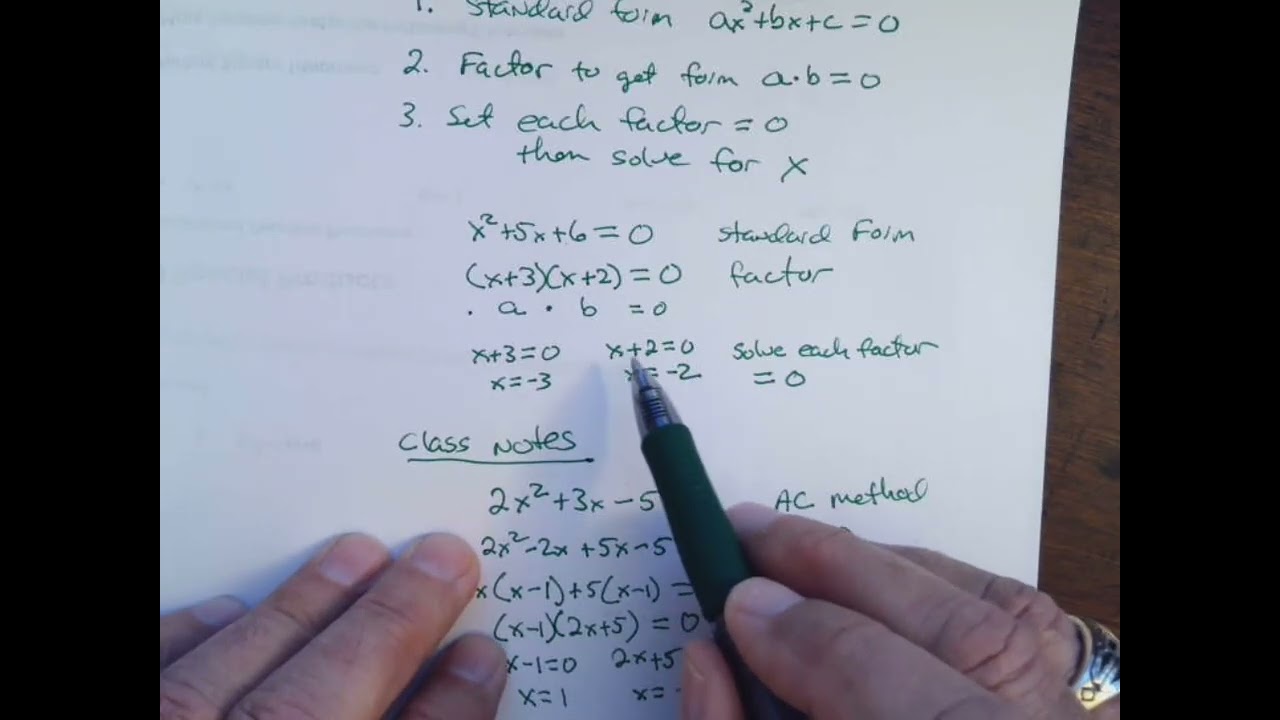 1. Standard form ax²+bx+c=0
2. Factor to get form a·b=0
3. Set each factor=0
then solve for x
x²+5x+6=0 standard Form
(x+3)(x+2)=0 factor
· a · b =0
x+3=0 x+2=0 solve each factor
x=-3 x=-2 =0
Class Notes
2x²+3x-5 AC method
2x²-2x+5x-5
x(x-1)+5(x-1)=
(x-1)(2x+5)=0
x-1=0 2x+5
x=1 x=-